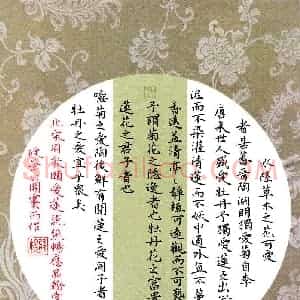 水陸草木之花可愛
者甚蕃晉陶淵明獨愛菊自李
唐来世人盛愛牡丹予獨愛蓮之出淤
泥而不染濯清漣而不妖中通外直不蔓
香遠益清亭亭靜植可遠觀而不可褻
予謂菊花之隱逸者也牡丹花之富貴
蓮花之君子者也
噫菊之愛陶後鮮有聞蓮之愛同予者
牡丹之愛宜乎衆矣
北宋周敦頤愛蓮說